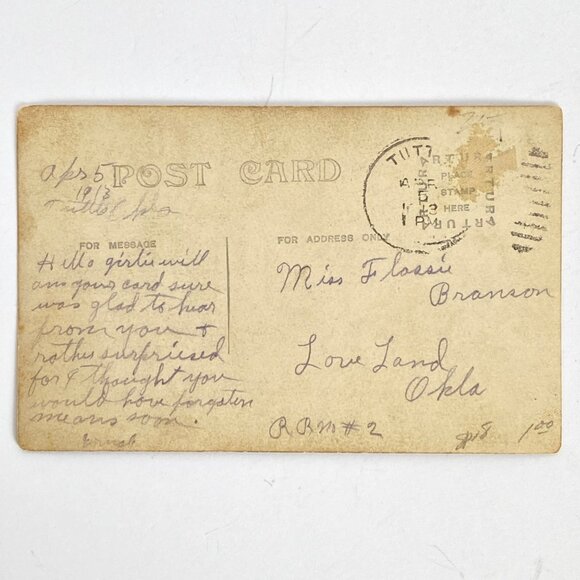 Apr 5
1913
Tuttle Okla
POST CARD
TUTT
APR 5
ARTURA
ARTURA
ARTURA
ARTURA
PLACE
STAMP
HERE
FOR MESSAGE
FOR ADDRESS ONLY
Hello girlie will
ans your card sure
was glad to hear
from you &
rather surpriesed
for I thought you
would have forgoten
means soon.
Miss Flossie
Branson
Love Land
Okla
R R No # 2
1.00